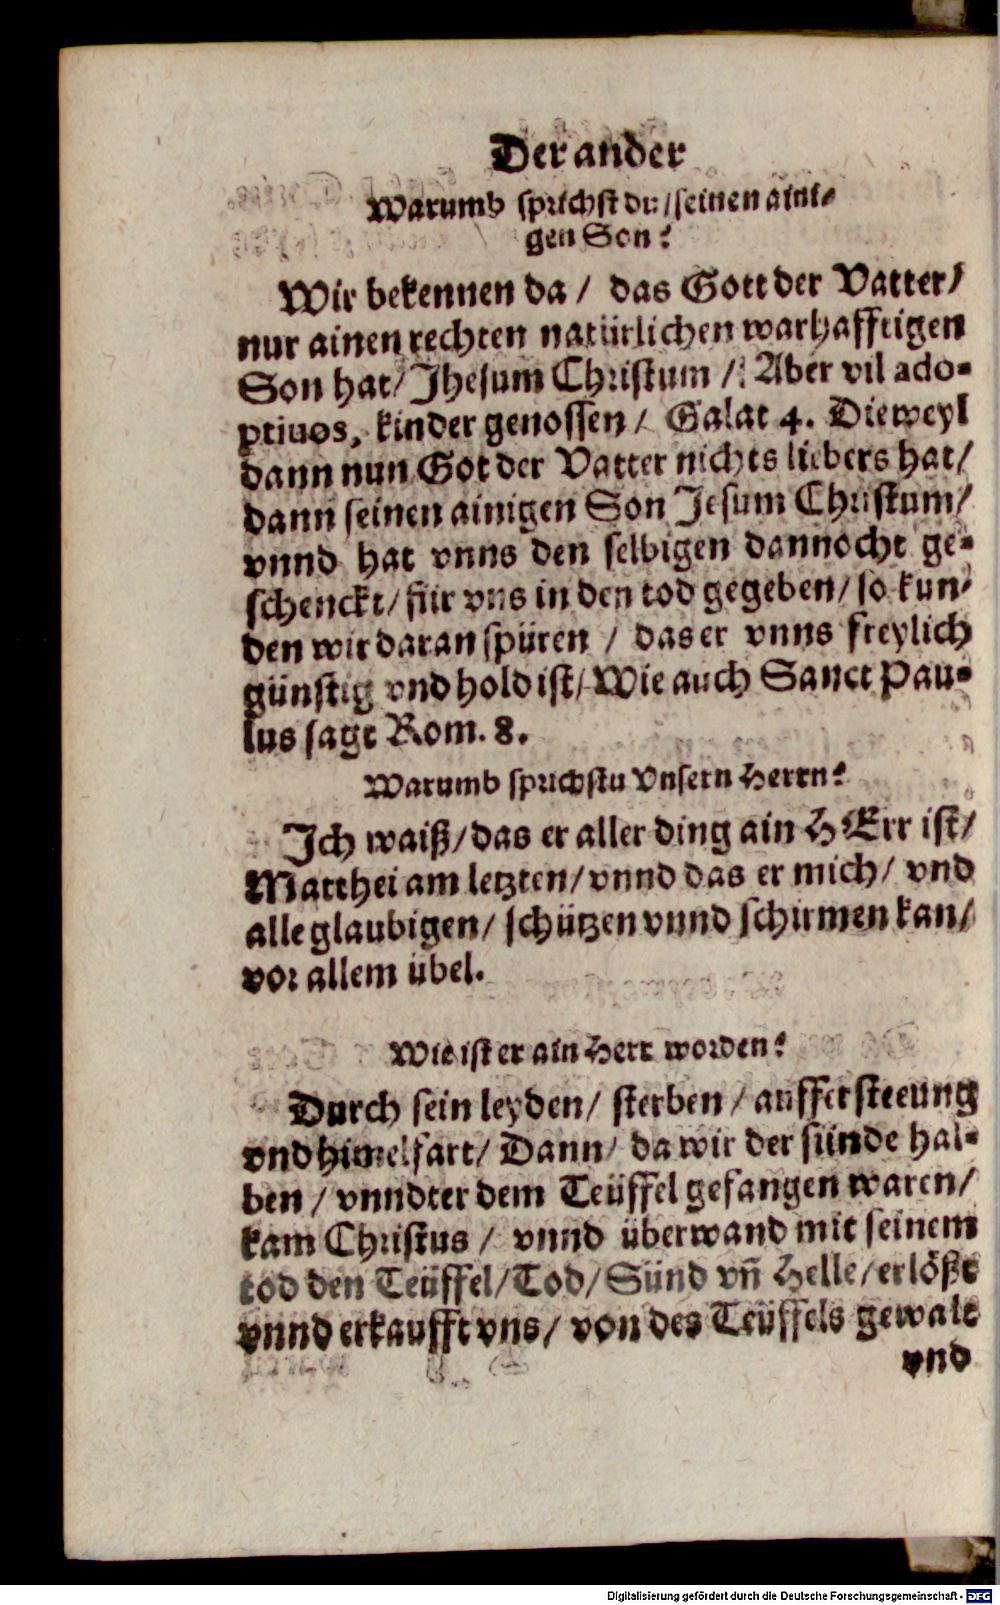 Der ander
Warumb sprichst du / seinen aini⸗
gen Son?
Wir bekennen da / das Gott der Vatter /
nur ainen rechten natürlichen warhafftigen
Son hat / Jhesum Christum / Aber vil ado⸗
ptiuos, kinder genossen / Galat 4. Dieweyl
dann nun Got der Vatter nichts liebers hat /
dann seinen ainigen Son Jesum Christum /
vnnd hat vnns den selbigen dannocht ge⸗
schenckt / für vns in den tod gegeben / so kun⸗
den wir daran spüren / das er vnns freylich
günstig vnd hold ist / Wie auch Sanct Pau⸗
lus sagt Rom. 8.
Warumb sprichstu Vnsern Herrn?
Ich waiß / das er aller ding ain HErr ist /
Matthei am letzten / vnnd das er mich / vnd
alle glaubigen / schützen vnnd schirmen kan /
vor allem übel.
Wie ist er ain Herr worden?
Durch sein leyden / sterben / auffersteeung
vnd himelfart / Dann / da wir der sünde hal⸗
ben / vnndter dem Teüffel gefangen waren /
kam Christus / vnnd überwand mit seinem
tod den Teüffel / Tod / Sünd vn̄ Helle / erlößt
vnnd erkaufft vns / von des Teüffels gewalt
vnd
Digitalisierung gefördert durch die Deutsche Forschungsgemeinschaft - DFG